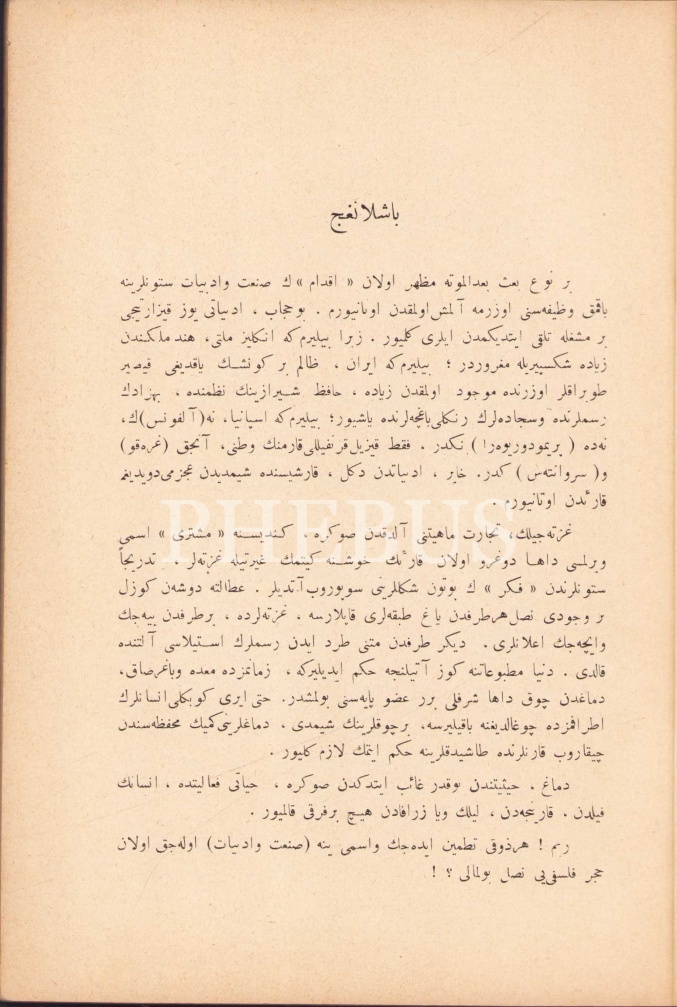 باشلانغج
بر نوع بعث بعدالموته مظهر اولان « اقدام » ك صنعت وادبيات ستونلرينه
باقمق وظيفه‌سنى اوزرمه آلمش اولمقدن اوتانيورم . بوحجاب ، ادبياتى يوز قيزارتيجى
بر مشغله تلقى ايتديكمدن ايلرى كليور . زيرا بيليرم كه انكليز ملتى، هند ملكندن
زياده شكسپيريله مغروردر ؛ بيليرم كه ايران ، ظالم بر كونشك ياقديغى قيصير
طوپراقلر اوزرنده موجود اولمقدن زياده ، حافظ شيرازينك نظمنده ، بهزادك
رسملرنده وسجاده‌لرك رنكلى باغچه‌لرنده ياشيور؛ بيليرم كه اسپانيا، نه (آلفونس) ك،
نه‌ده ( پريمودوريوه‌را ) نكدر . فقط قيزيل قرنفيللى قارمنك وطنى، آنجق (غره‌قو)
و ( سروانته‌س ) كدر. خاير ، ادبياتدن دكل ، قارشيسنده شيمديدن عجزمى دويديغم
قارئدن اوتانيورم .
غزته‌جيلك، تجارت ماهيتنى آلدقدن صوكره ، كنديسنه « مشترى » اسمى
ويرلمسى داها دوغرو اولان قارئك خوشنه كيتمك غيرتيله غزته‌لر . تدريجاً
ستونلرندن « فكر » ك بوتون شكللرينى سوپوروب آتديلر . عطالته دوشن كوزل
بر وجودى نصل هر طرفدن ياغ طبقه‌لرى قاپلارسه ، غزته‌لرده ، بر طرفدن ييه‌جك
وايچه‌جك اعلانلرى . ديكر طرفدن متنى طرد ايدن رسملرك استيلاسى آلتنده
قالدى . دنيا مطبوعاتنه كوز آتيلنجه حكم ايديليركه ، زمانمزده معده وباغرصاق،
دماغدن چوق داها شرفلى برر عضو پايه‌سنى بولمشدر. حتى ايرى كوبكلى انسانلرك
اطرافمزده چوغالديغنه باقيليرسه، برچوقلرينك شيمدى ، دماغلرينى كميك محفظه‌سندن
چيقاروب قارنلرنده طاشيدقلرينه حكم ايتمك لازم كليور .
دماغ . حيثيتندن بوقدر غائب ايتدكدن صوكره ، حياتى فعاليتده ، انسانك
فيلدن . قارينجه‌دن ، ليلك ويا زرافادن هيچ بر فرقى قالميور .
ربم ! هر ذوقى تطمين ايده‌جك واسمى ينه (صنعت وادبيات) اوله‌جق اولان
حجر فلسفى‌يى نصل بولمالى ؟ !
PHEBUS